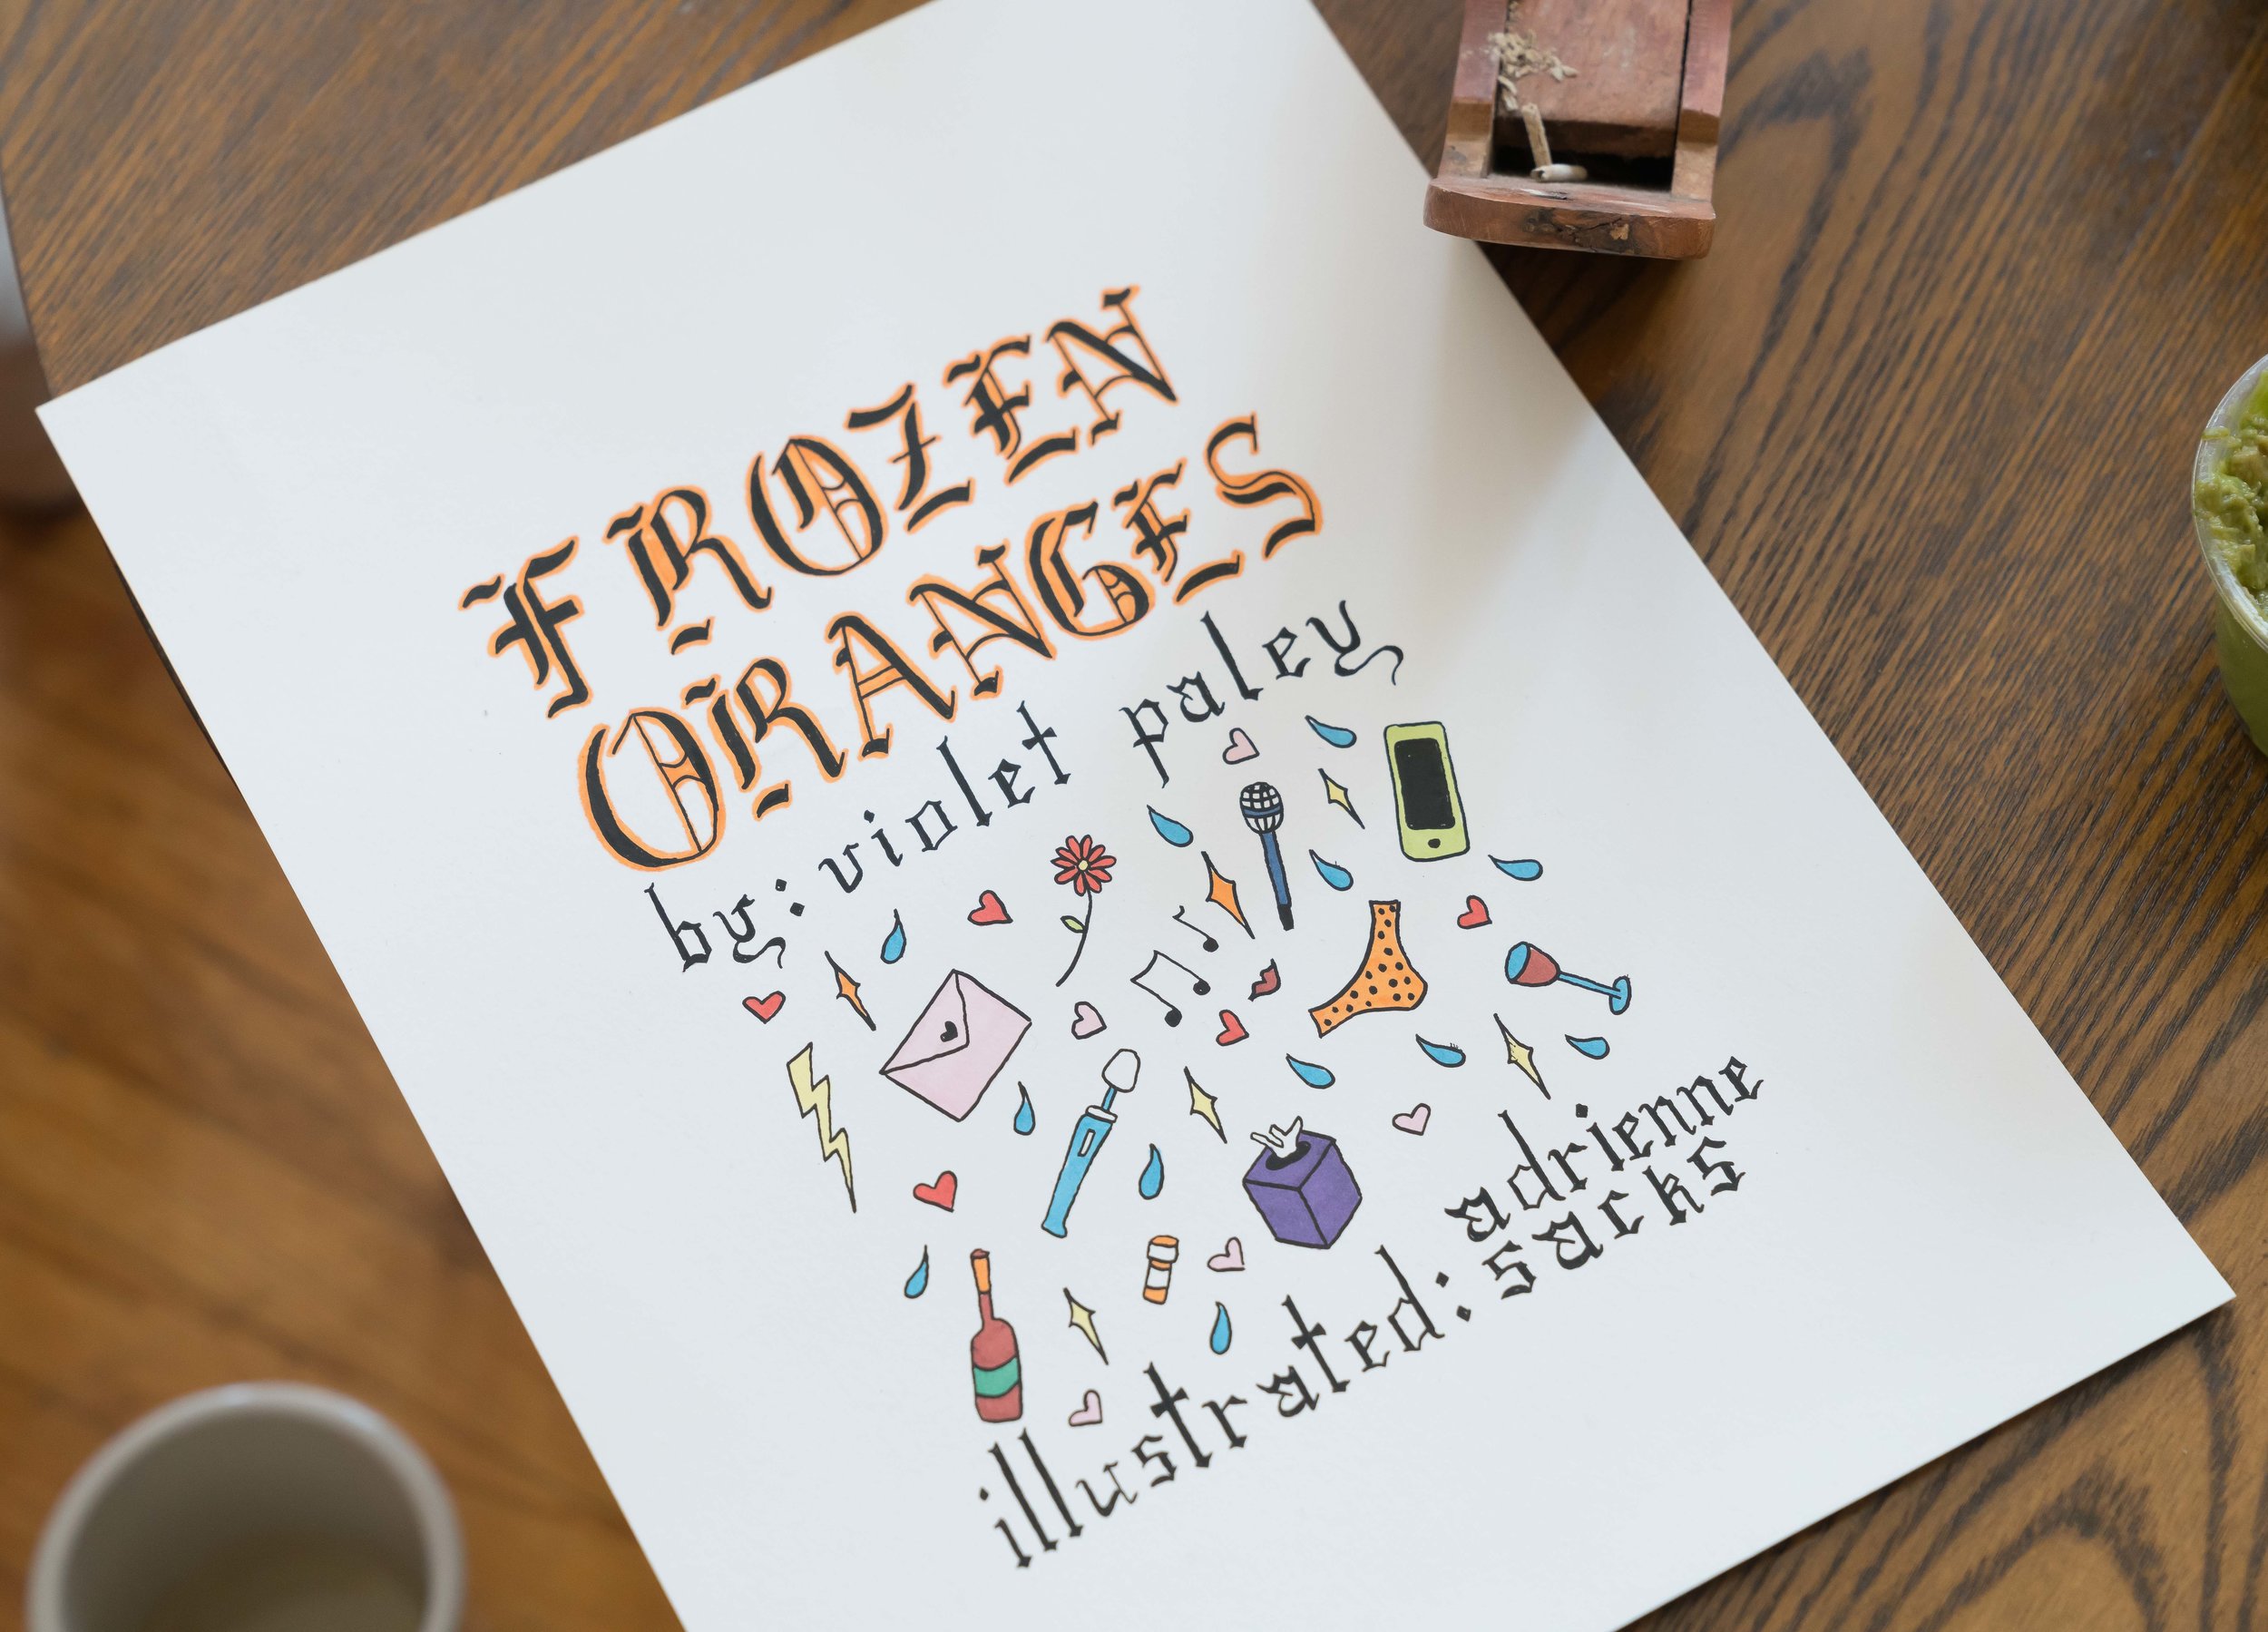 FROZEN
ORANGES
by: violet paley
illustrated: adrienne
sacks